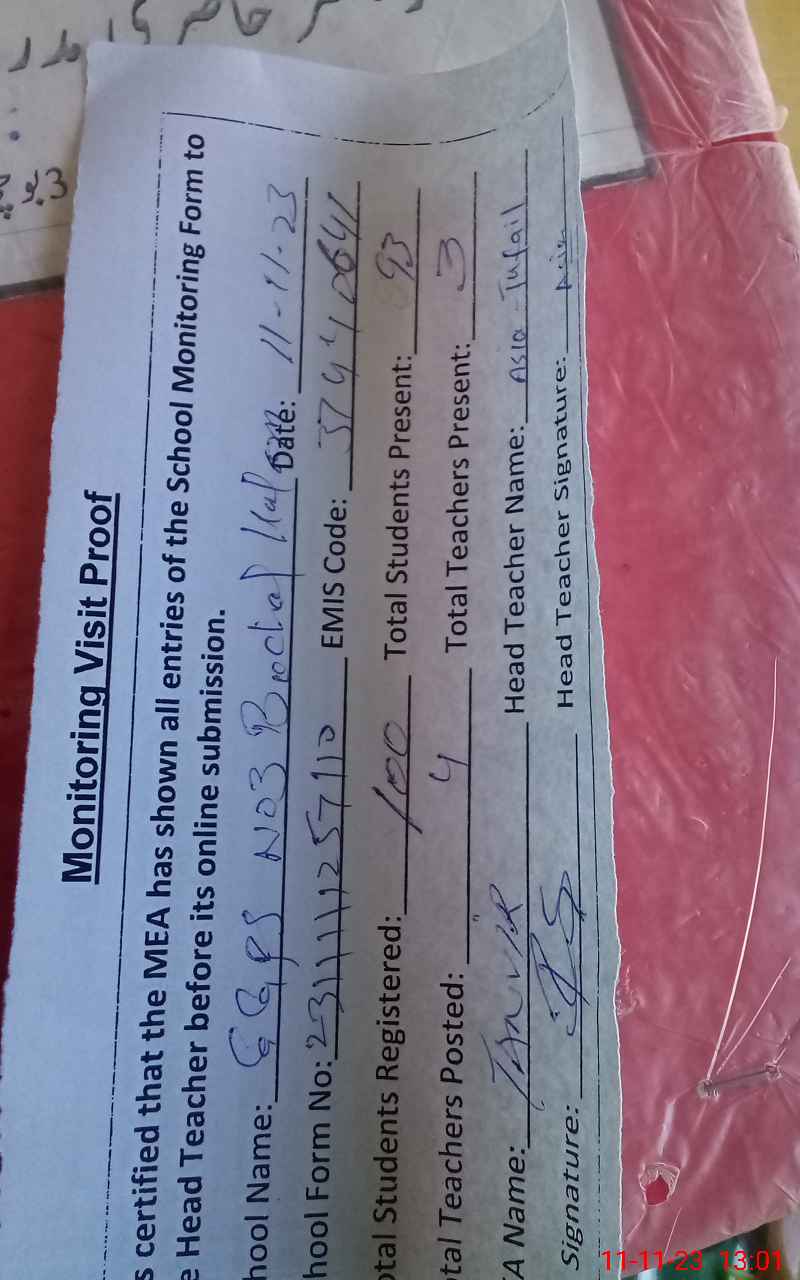 Monitoring Visit Proof
s certified that the MEA has shown all entries of the School Monitoring Form to
e Head Teacher before its online submission.
hool Name: GGPS NO3 Date: 11-11-23
hool Form No: 2311111257110 EMIS Code: 37440641
otal Students Registered: 100 Total Students Present: 93
otal Teachers Posted: 4 Total Teachers Present: 3
A Name: TANVIR Head Teacher Name: Asia Tufail
Signature: Head Teacher Signature:
11-11-23 13:01